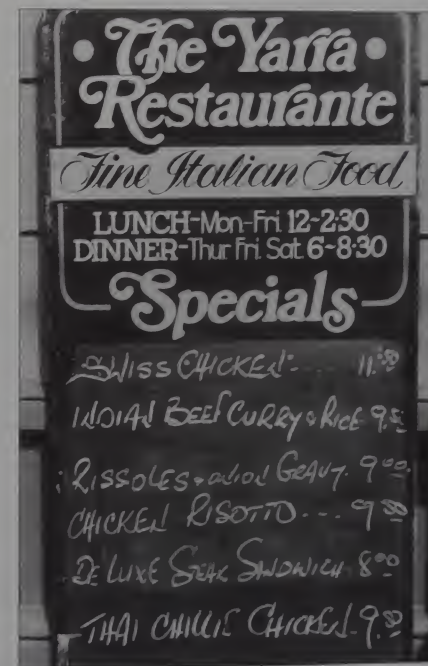 • The Yarra •
Restaurante
Fine Italian Food
LUNCH-Mon-Fri 12-2:30
DINNER-Thur Fri Sat 6-8:30
Specials
SWISS CHICKEN
INDIAN BEEF CURRY & RICE
RISSOLES & ONION GRAVY. 9.00
CHICKEN RISOTTO ---
DE LUXE STEAK SANDWICH 8.00
THAI CHILLIE CHICKEN